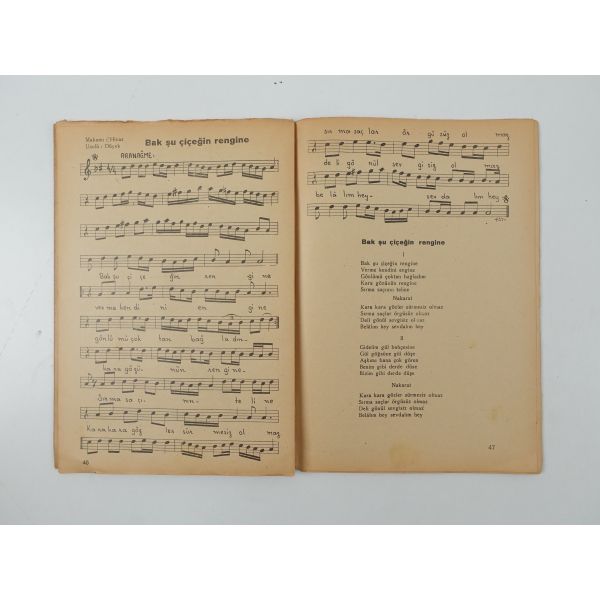 Makamı :
Usulü : Düyek
Bak şu çiçeğin rengine
ARANAĞME:
Bak şu çi çe ğin ren gi ne
ver me ken di ni en gi ne
gönlü mü çok tan bağ la dım
ka ra gö zü nün ren gi ne
Sır ma sa çı nın te li ne
Ka ra ka ra göz ler sür mesiz ol maz
46
sır ma saç lar ör gü süz ol maz
de li gö nül sev gi siz ol maz
be lâ lım hey sev da lım hey
Bak şu çiçeğin rengine
I
Bak şu çiçeğin rengine
Verme kendini engine
Gönlümü çoktan bağladım
Kara gözünün rengine
Sırma saçının teline
Nakarat
Kara kara gözler sürmesiz olmaz
Sırma saçlar örgüsüz olmaz
Deli gönül sevgisiz olmaz
Belâlım hey sevdalım hey
II
Gidelim gül bahçesine
Gül göğsüne gül düşe
Aşkıma bana çok gören
Benim gibi derde düşe
Bizim gibi derde düşe
Nakarat
Kara kara gözler sürmesiz olmaz
Sırma saçlar örgüsüz olmaz
Deli gönül sevgisiz olmaz
Belâlım hey sevdalım hey
47